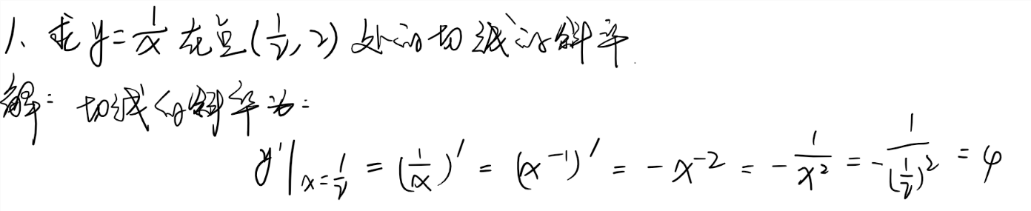 1、求 y=1/x 在点(1/2,2) 处的切线的斜率.
解: 切线的斜率为:
y'|x=1/2 = (1/x)' = (x^-1)' = -x^-2 = -1/x^2 = -1/(1/2)^2 = 4